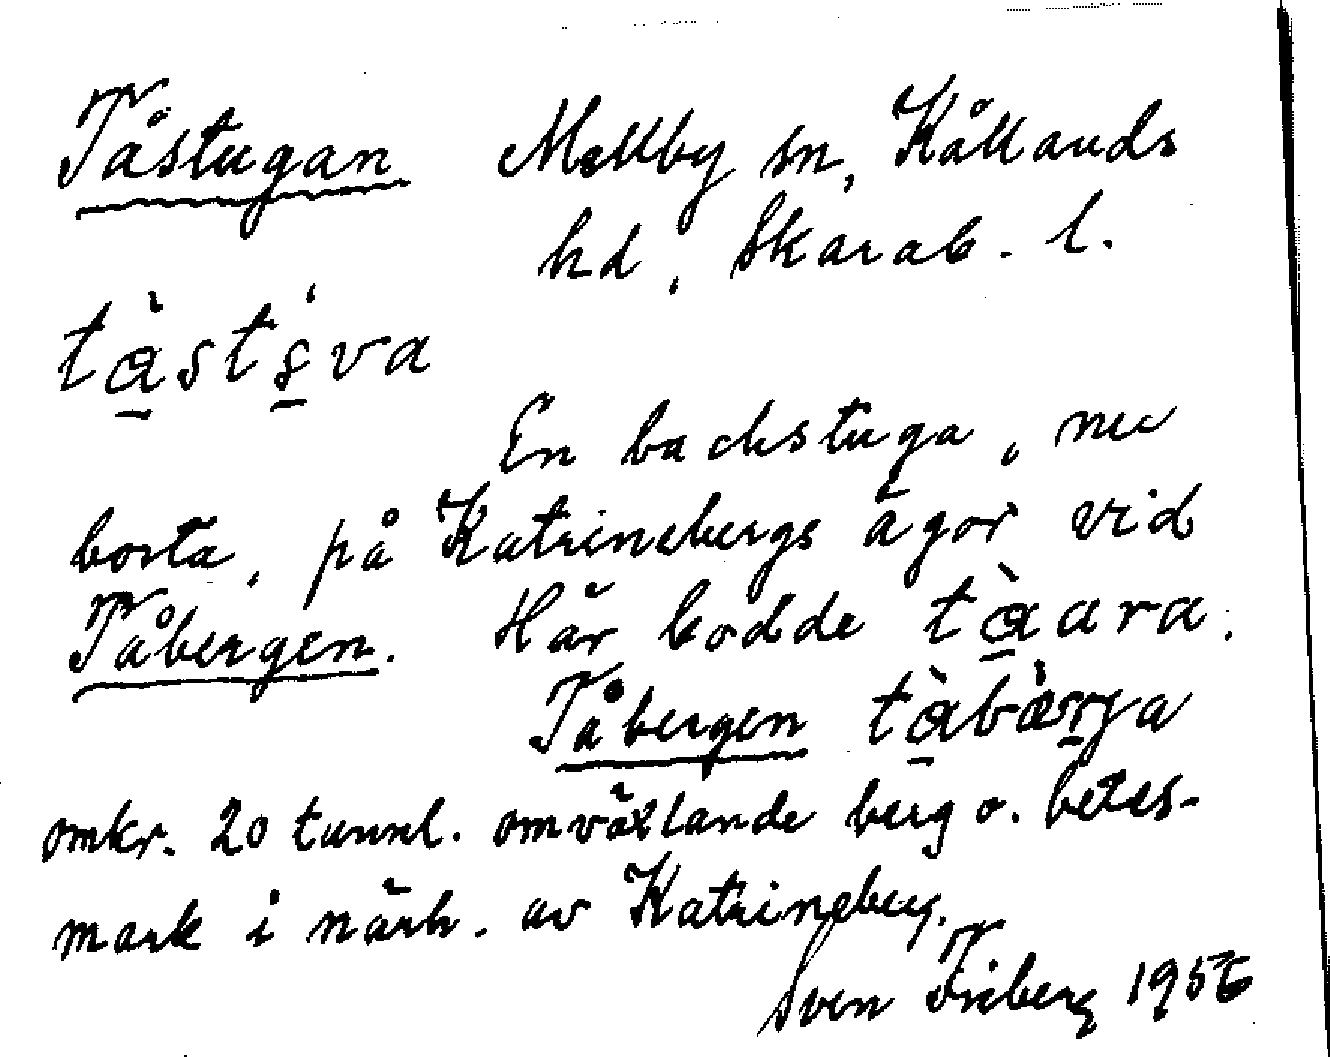 Tåstugan Mellby sn, Kållands
hd, Skarab. l.
tàstṣ́va
En backstuga, nu
borta, på Katrinebergs ägor vid
Tåbergen. Här bodde tàara.
Tåbergen tàbærja
omkr. 20 tunnl. omväxlande berg o. betes-
mark i närh. av Katrineberg.
Sven Friberg 1956